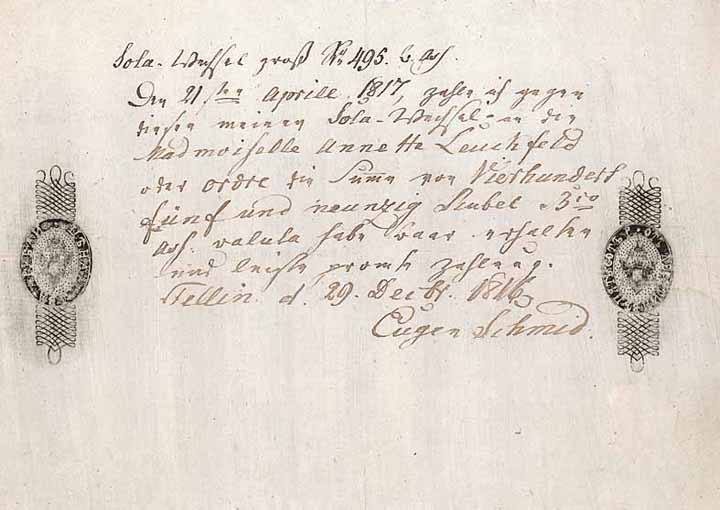 Sola-Wechsel groß Rl 495. b. Ass.
Den 21sten Aprill 1817, zahle ich gegen
diesen meinen Sola-Wechsel an die
Madmoiselle Annette Leuchfeld
oder ordre die Summa von Vierhundert
fünf und neunzig Rubel
Ass. valuta habe baar erhalten
und leiste promte zahlung.
Fellin d. 29. Decbr. 1816
Eugen Schmid.